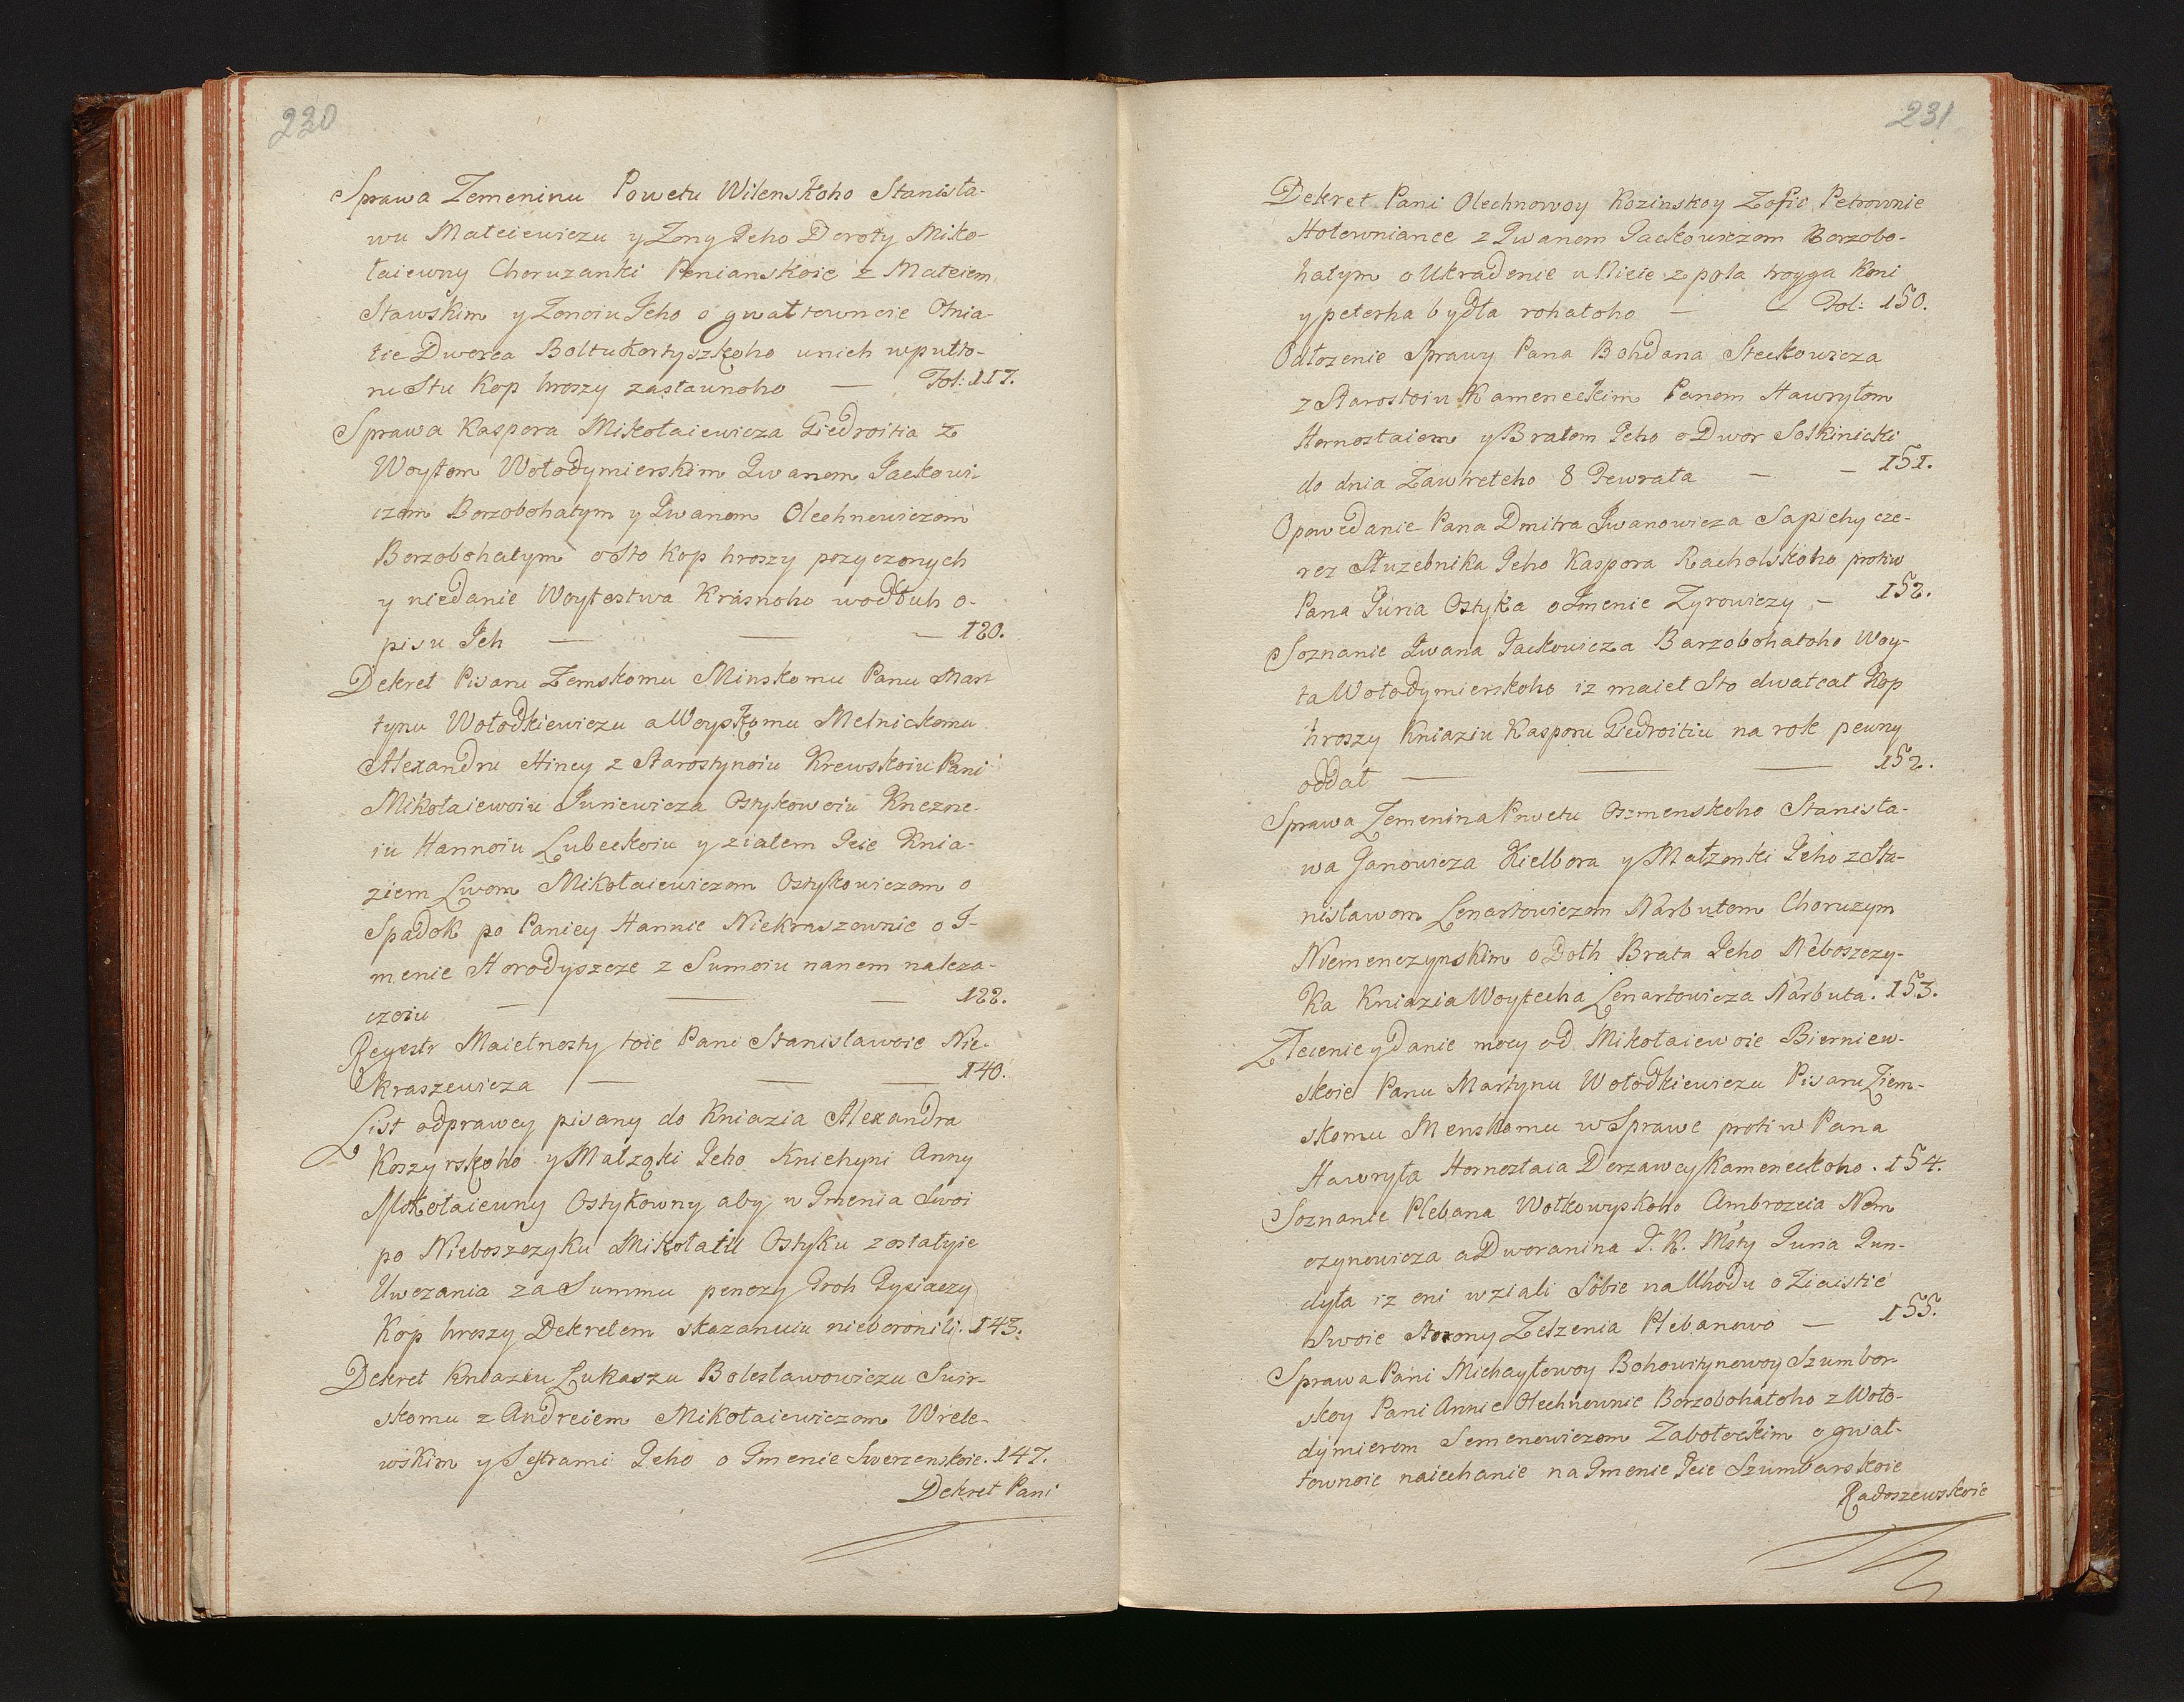 230
Sprawa Zemeninu Powetu Wilenskoho Stanisła-
wu Mateiewiczu y Zony Jeho Doroty Miko-
łaiewny Choruzanki Penianskoie z Mateiem
Sławskim y Zonoiu Jeho o gwałtownoie Otnia-
tie Dworca Bołtukortyszkoho unich wpułto-
ru Stu Kop hroszy zastawnoho — Fol: 117.
Sprawa Kaspora Mikołaiewicza Giedroitia z
Woytom Wołodymierskim Jwanom Jackowi
czom Borzobohatym y Jwanom Olechnowiczom
Borzobohatym o Sto kop hroszy pozyczonych
y niedanie Woytostwa Krasnoho wodłuh o-
pisu Jch — — — 120.
Dekret Pisaru Zemskomu Minskomu Panu Mar
tynu Wołodkiewiczu a Woyskomu Melnickomu
Alexandru Hincy z Starostynoiu Krewskoiu Pani
Mikołaiewoiu Juriewicza Ostykowoiu Knezne-
iu Hannoiu Lubeckoiu y ziatem Jeie Knia-
ziem Lwom Mikołaiewiczom Ostykowiczom o
Spadok po Paniey Hannie Niekraszownie o J-
menie Horodyszcze z Sumoiu nanem naleza-
czoiu — — — 122.
Regestr Maietnosty toie Pani Stanisławoie Nie-
kraszewicza — — — 140.
List odprawcy pisany do Kniazia Alexandra
Koszyrskoho y Małząki Jeho Kniehyni Anny
Mikołaiewny Ostykowny aby w Jmenia Swoi
po Nieboszczyku Mikołaiu Ostyku zostałyie
Uwezania za Summu penezy Troh Tysiaczy
Kop hroszy Dekretem skazanuiu nieboronili. 143.
Dekret Kniaziu Łukaszu Bolesławowiczu Swir-
skomu z Andreiem Mikołaiewiczom Wrele-
wskim y Sestrami Jeho o Jmenie Swerzenskoie. 147.
Dekret Pani
231
Dekret Pani Olechnowoy Kozinskoy Zofie Petrownie
Hołowniance z Jwanom Jackowiczom Borzobo-
hatym o Ukradenie u Nieie z pola troyga Koni
y peterha bydła rohatoho — — Fol: 150.
Odłozenie Sprawy Pana Bohdana Steckowicza
z Starostoiu Kameneckim Panom Hawryłom
Hornostaiem y Bratom Jeho o Dwor Soskinicki
do dnia Zawtreteho 8 Fewrala — — 151.
Opowedanie Pana Dmitra Jwanowicza Sapiehy cze-
rez Służebnika Jeho Kaspora Racholskoho protiw
Pana Juria Ostyka o Jmenie Zyrowiczy — 152.
Soznanie Jwana Jackowicza Barzobohatoho Woy-
ta Wołodymierskoho iz maiet Sto dwatcat Kop
hroszy Kniaziu Kasporu Giedroitiu na rok pewny
oddat — — — 152.
Sprawa Zemenina Powetu Oszmenskoho Stanisła-
wa Janowicza Kielbora y Małzonki Jeho z Sta-
nisławom Lenartowiczom Narbutom Choruzym
Niemenczynskim o Dolh Brata Jeho Neboszczy-
ka Kniazia Woytecha Lenartowicza Narbuta. 153.
Zlecenie y danie mocy od Mikołaiewoie Bierniew-
skoie Panu Martynu Wołodkiewiczu Pisaru Ziem-
skomu Menskomu w Sprawe protiw Pana
Hawryła Hornostaia Derzawcy Kameneckoho. 154.
Soznanie Plebana Wołkowyskoho Ambrozeia Nem
czynowicza a Dworanina J. K. Msty Juria Jun-
dyła iz oni wziali Sobie na Uhodu o Ziaistie
Swoie Storony Zelzenia Plebanowo — 155.
Sprawa Pani Michayłowoy Bohowitynowoy Szumbor-
skoy Pani Annie Olechnownie Borzobohatoho z Woło-
dymierom Semenowiczom Zabołockim o gwał-
townoie naiechanie na Jmenie Jeie Szumbarskoie
Radoszewskoie